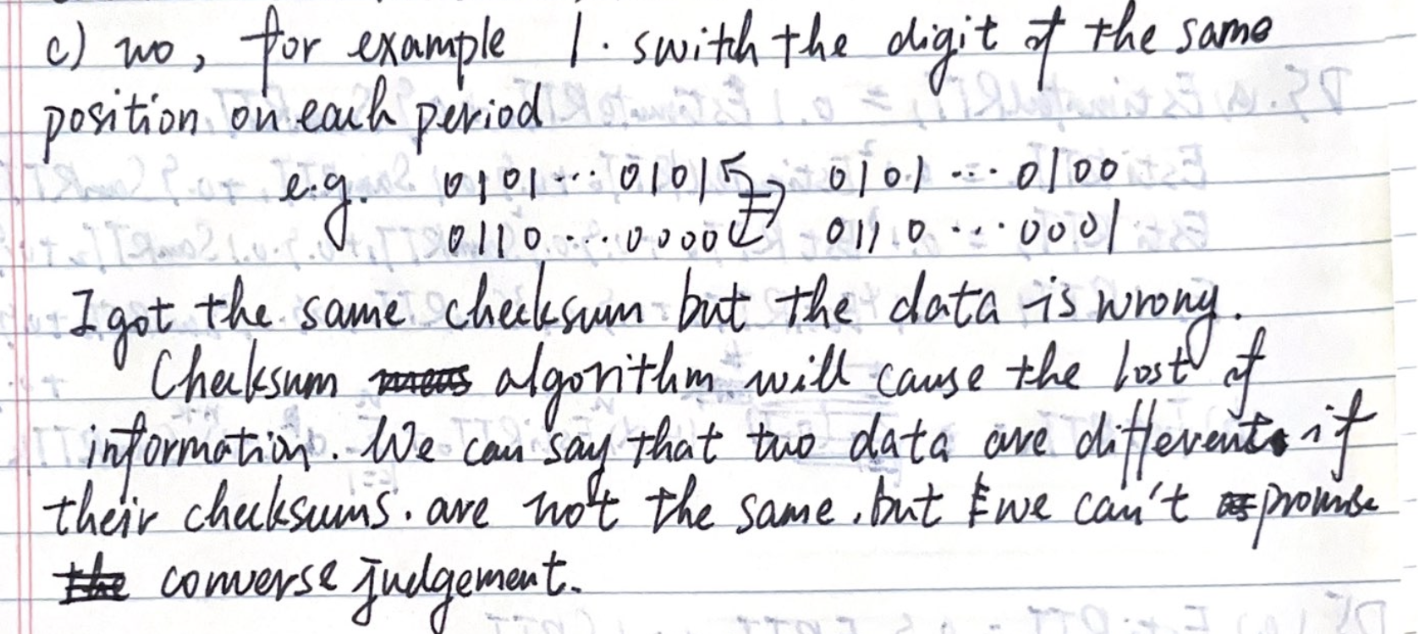 c) no, for example 1. switch the digit of the same
position on each period
e.g. 0101...0101 0101...0100
0110...0000 0110...0001
I got the same checksum but the data is wrong.
Checksum algorithm will cause the lost of
information. We can say that two data are different if
their checksums. are not the same. but we can't promise
converse judgement.